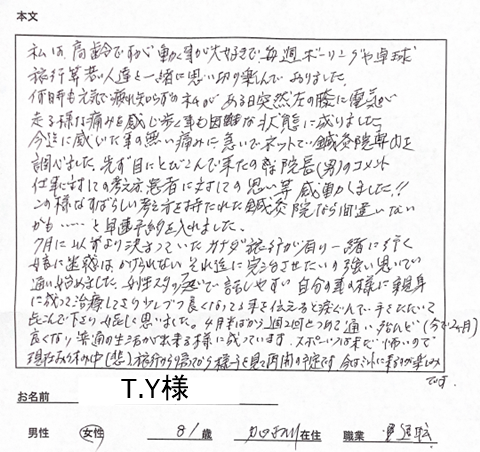 本文
私は、高齢ですが動く事が大好きで毎週ボーリングや卓球
旅行等若い人達と一緒に思い切り楽しんでおりました。
何時も元気で疲れ知らずの私がある日突然左の膝に電気が
走る様な痛みを感じ歩く事も困難な状態に成りました。
今迄に感いた事の無い痛みに急いでネットで鍼灸院専門を
調べました。先ず目にとびこんで来たのが院長(男)のコメント
仕事に対しての考え方患者に対しての思い等感動しました!!
この様なすばらしい考え方を持たれた鍼灸院なら間違いない
かも……と早速予約を入れました。
7月に以前より決まっていたカナダ旅行が有り一緒に行く
に迷惑はかけられないそれ迄に完治させたい強い思いで
通い始めました。女性スタッフで話しやすい自分の事の様に親身
に成って治療して下さり少しづつ良くなってる事を伝えると喜んで手をたたいて
喜こんで下さり嬉しく思いました。4月半ばから週2回とつめて通い殆んど(今で2ヶ月)
良くなり普通の生活が出来る様に成っています。スポーツは未だ怖いので
現在お休み中(悲)旅行から帰ってから様子を見て再開の予定です 今はミントに来るのが楽しみ
です。
お名前 T.Y様
男性 女性 81歳 在住 職業